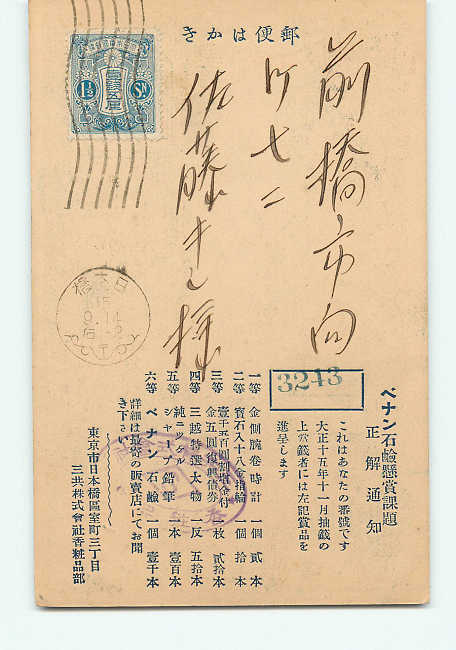 郵便はかき
前橋市向
町七二
佐藤キし様
1½ SN
日本橋
3243
ペナン石鹼懸賞課題
正解通知
これはあなたの番號です
大正十五年十一月抽籤の
上當籤者には左記賞品を
進呈します
一等 金側腕巻時計 一個 貳本
二等 寶石入十八金指輪 一個 拾本
三等 壹千五百圓割增金付
金五圓復興債券 一枚 貳拾本
四等 三越特選太物 一反 五拾本
五等 純ニッケル
シャープ鉛筆 一本 壹百本
六等 ペナン石鹼 一個 壹千本
詳細は最寄の販賣店にてお聞
き下さい
東京市日本橋區室町三丁目
三共株式會社香粧品部